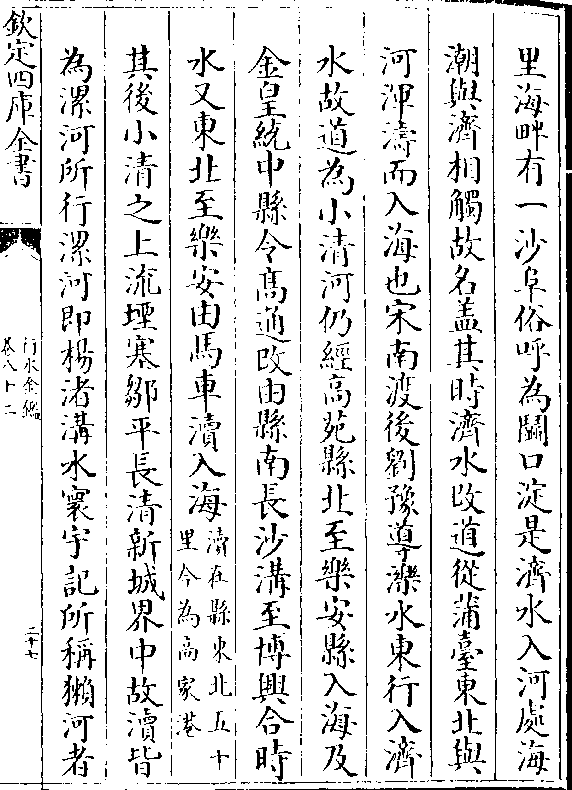 里海畔有一沙阜俗呼為鬭口淀是濟水入河處海
潮與濟相觸故名盖其時濟水改道從蒲臺東北與
河渾濤而入海也宋南渡後劉豫導濼水東行入濟
水故道為小清河仍經高苑縣北至樂安縣入海及
金皇統中縣令髙通改由縣南長沙溝至博興合時
水又東北至樂安由馬車瀆入海瀆在縣東北五十
里今為高家港
其後小清之上流堙塞鄒平長清新城界中故瀆皆
為漯河所行漯河即楊渚溝水寰宇記所稱獺河者
欽定四庫全書
行水金鑑
卷八十二
二十七